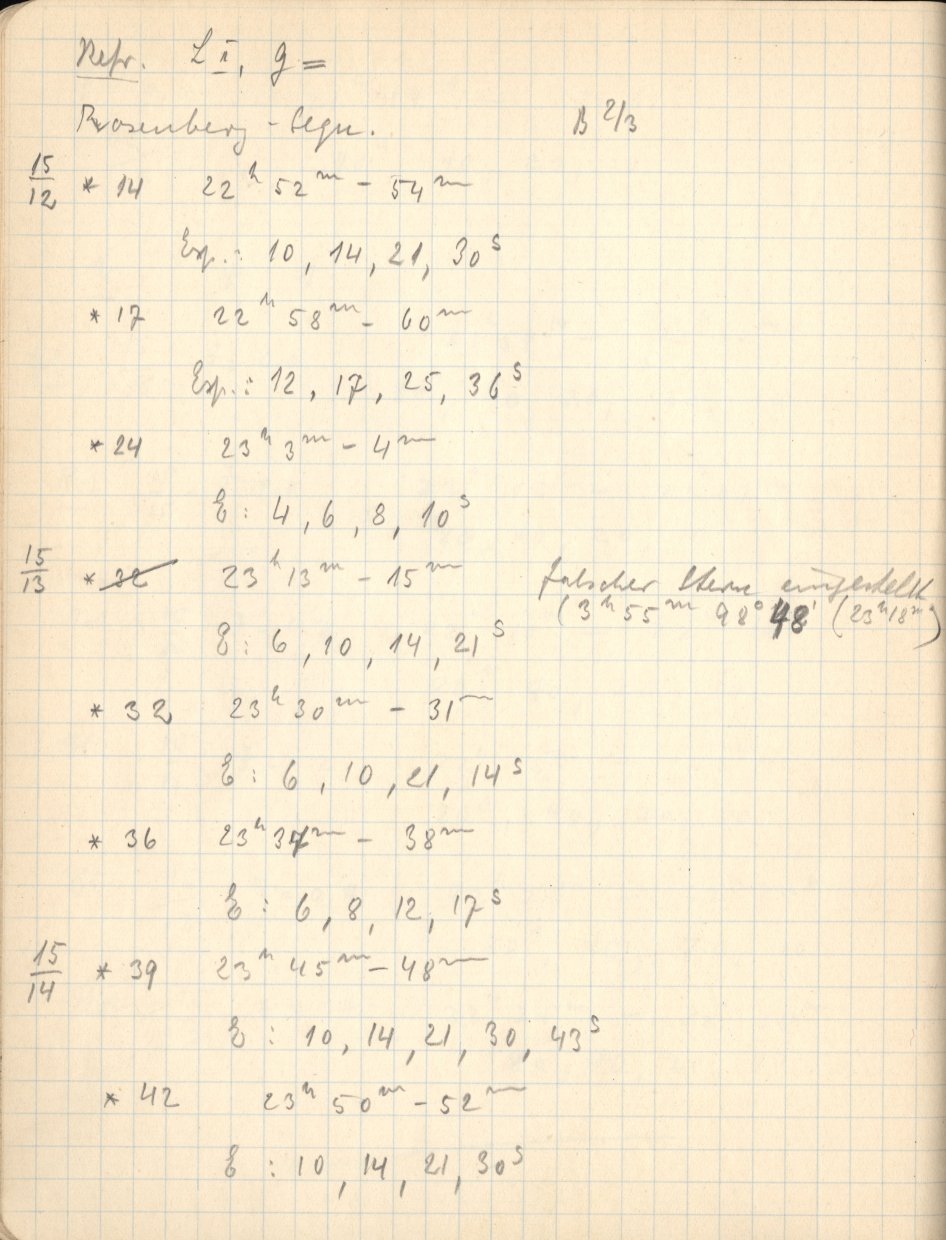 Refr. L I, g =
Rosenberg - Sequ. B 2/3
15/12 * 14 22h 52m - 54m
Exp.: 10, 14, 21, 30s
* 17 22h 58m - 60m
Exp.: 12, 17, 25, 36s
* 24 23h 3m - 4m
E: 4, 6, 8, 10s
15/13 * 32 23h 13m - 15m falscher Stern eingestellt
(3h 55m 98° 48' (23h 18m)
E: 6, 10, 14, 21s
* 32 23h 30m - 31m
E: 6, 10, 21, 14s
* 36 23h 37m - 38m
E: 6, 8, 12, 17s
15/14 * 39 23h 45m - 48m
E: 10, 14, 21, 30, 43s
* 42 23h 50m - 52m
E: 10, 14, 21, 30s